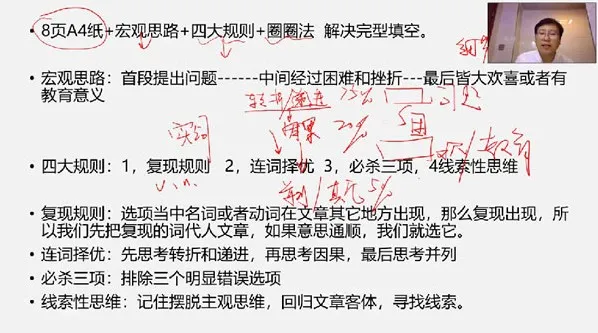 • 8页A4纸+宏观思路+四大规则+圈圈法 解决完型填空。
• 宏观思路：首段提出问题------中间经过困难和挫折---最后皆大欢喜或者有
教育意义
转折/递进 75%
实词
因果 20%
5团
• 四大规则：1，复现规则 2，连词择优 3，必杀三项，4线索性思维
v. n.
并列/其它 5%
• 复现规则：选项当中名词或者动词在文章其它地方出现，那么复现出现，所
以我们先把复现的词代人文章，如果意思通顺，我们就选它。
• 连词择优：先思考转折和递进，再思考因果，最后思考并列
• 必杀三项：排除三个明显错误选项
• 线索性思维：记住摆脱主观思维，回归文章客体，寻找线索。